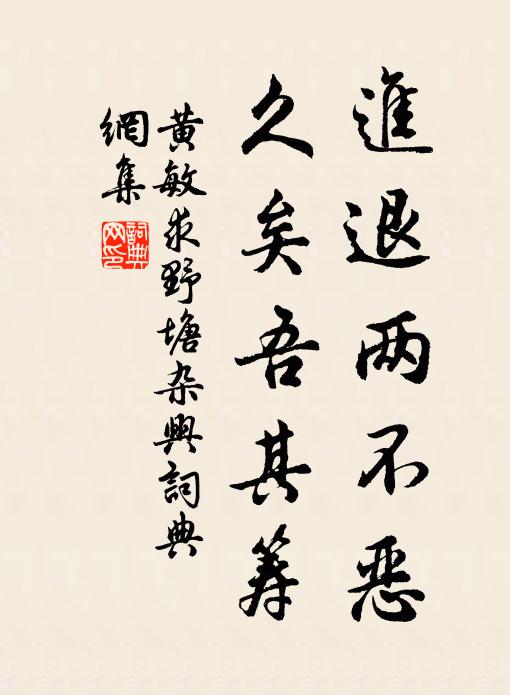 進退两不恶
久矣吾其筹
黄敏求野塘杂興詞典
網集
詞典网印